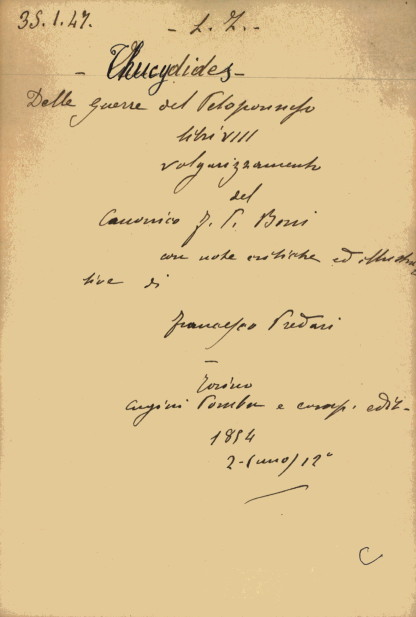 35.1.47. - L. Z. -
- Thucydides -
Delle guerre del Peloponneso
libri VIII
volgarizzamento
del
Canonico J. P. Boni
con note critiche ed illustra
tive di
Francesco Predari
Torino
cugini Pomba e comp. edit.
1854
2-(uno) 12°
C